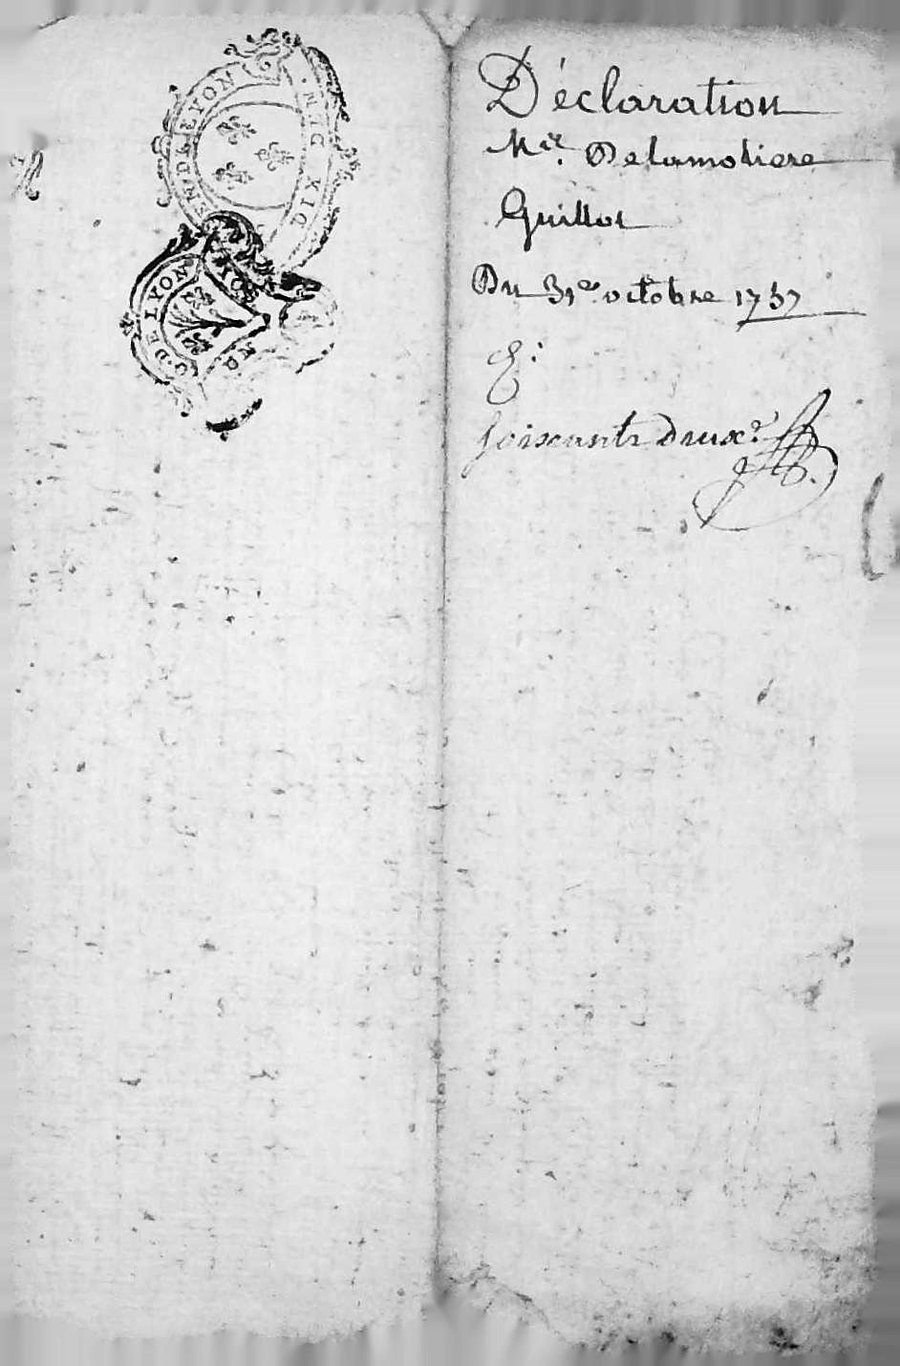 G. DE LYON
DE LYON
Déclaration
Mr. Delamoliere
Guillot
Du 31e octobre 1737
E:
soixante deuxe.